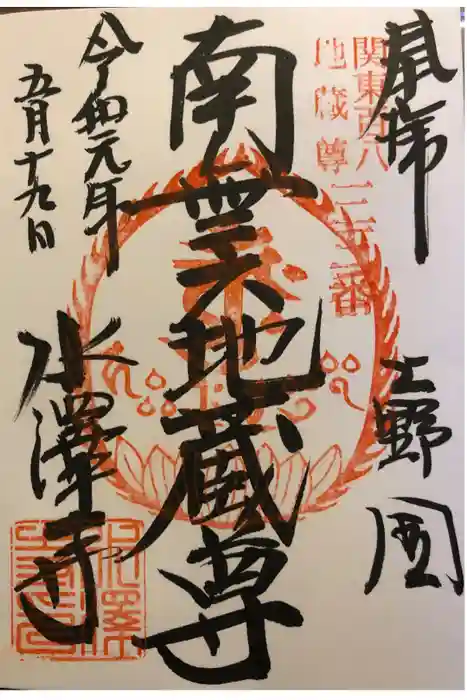 奉拝
上野国
関東百八
地蔵尊
三十三番
南無地蔵尊
令和元年
五月十九日
水澤寺